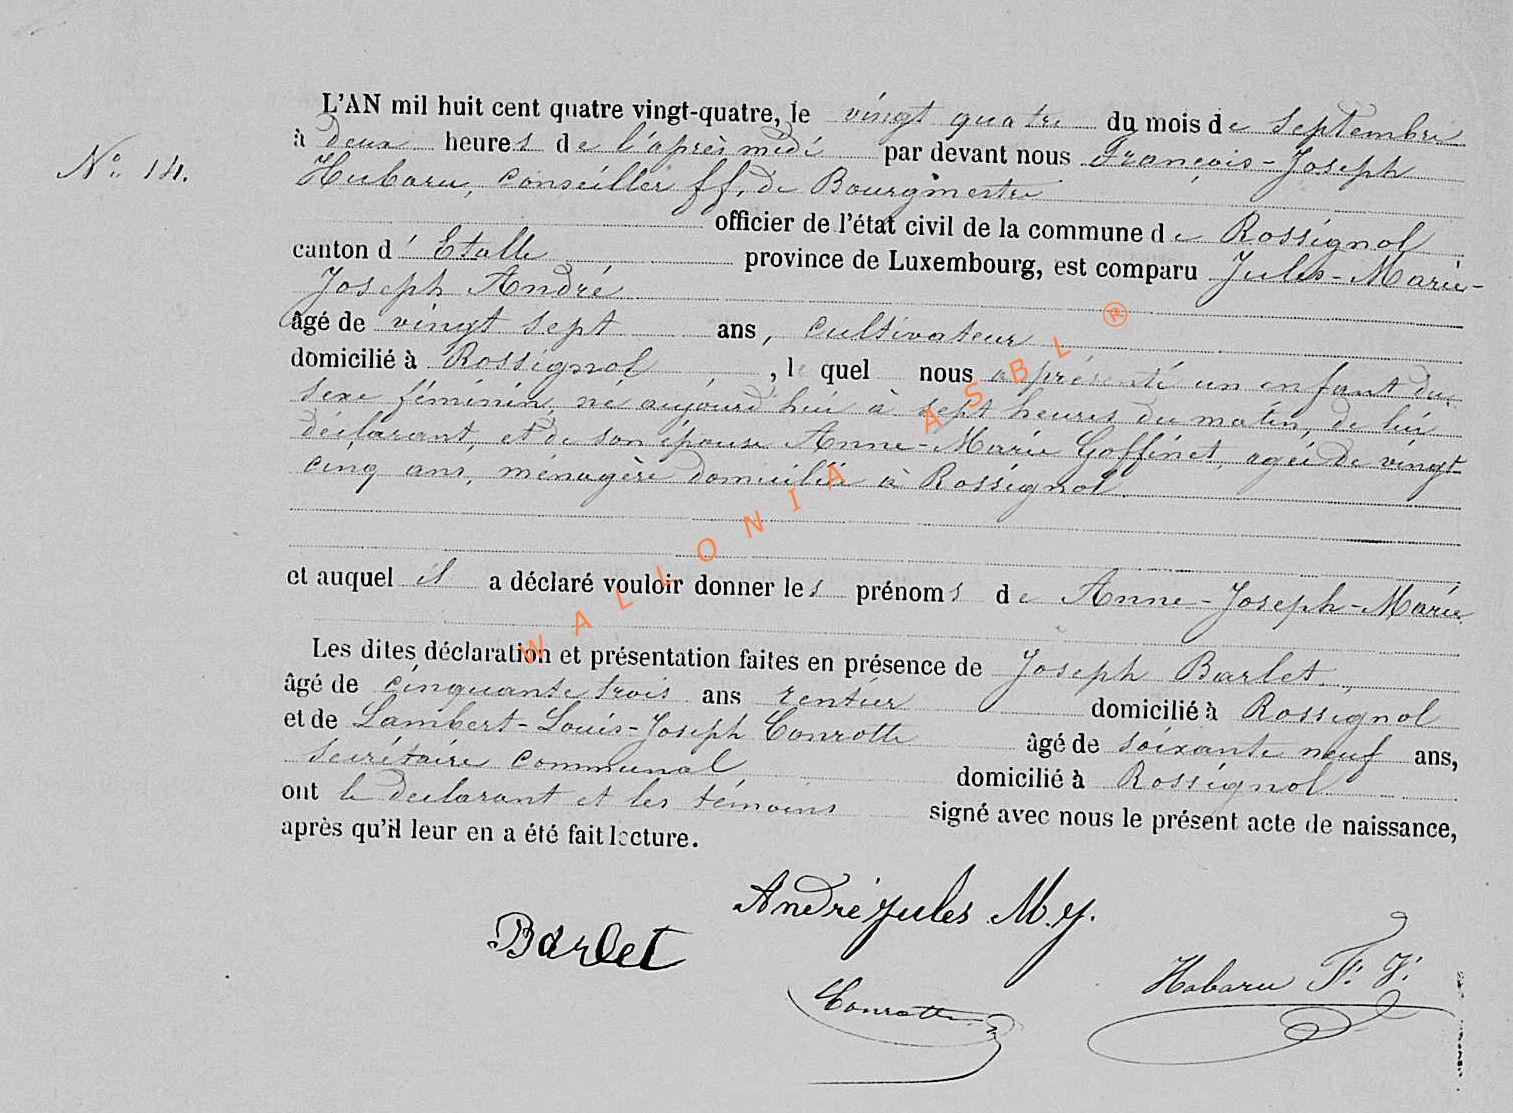 L'AN mil huit cent quatre vingt-quatre, le vingt quatre du mois de Septembre
N° 14. à deux heures de l'après midi par devant nous François-Joseph
Habaru, Conseiller ff. de Bourgmestre
officier de l'état civil de la commune de Rossignol
canton d'Etalle province de Luxembourg, est comparu Jules-Marie-
Joseph André
âgé de vingt sept ans, cultivateur
domicilié à Rossignol, le quel nous a présenté un enfant du
sexe féminin, né aujourd'hui à sept heures du matin, de lui
déclarant, et de son épouse Anne-Marie Goffinet, agée de vingt
cinq ans, ménagère domiciliée à Rossignol.
et auquel il a déclaré vouloir donner les prénoms de Anne-Joseph-Marie.
Les dites déclaration et présentation faites en présence de Joseph Barlet,
âgé de cinquante trois ans rentier domicilié à Rossignol
et de Lambert-Louis-Joseph Conrotte âgé de soixante neuf ans,
Secrétaire communal, domicilié à Rossignol
ont le déclarant et les témoins signé avec nous le présent acte de naissance,
après qu'il leur en a été fait lecture.
André Jules M.J.
Barlet
Conrotte
Habaru F. J.
WALLONIA ASBL ®